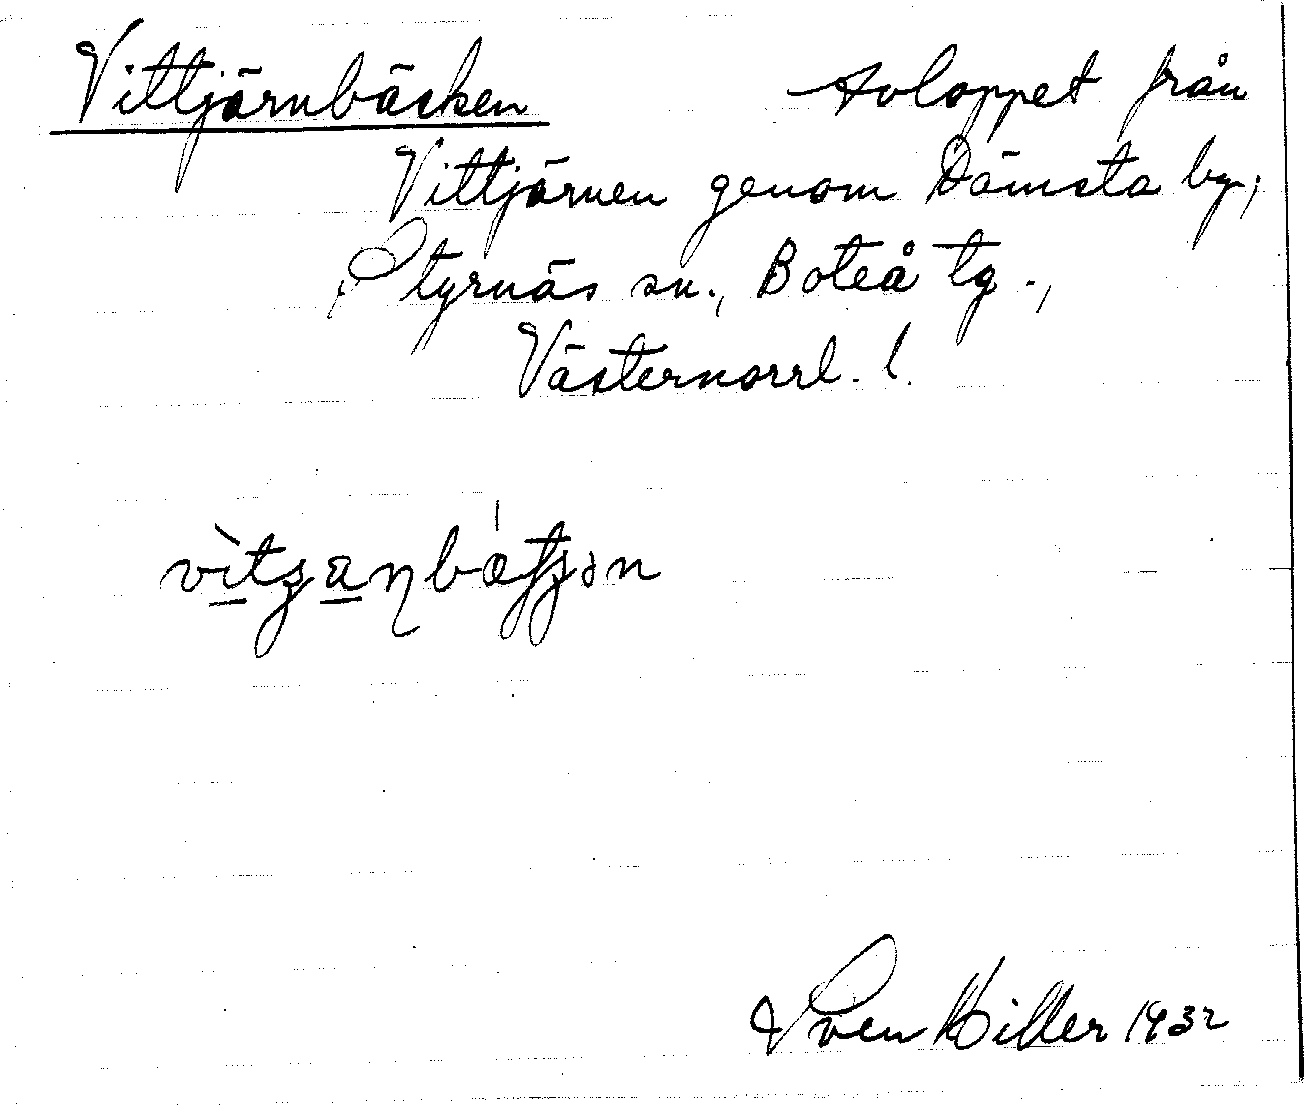 Vittjärnbäcken Avloppet från
Vittjärnen genom Dämsta by,
Styrnäs sn., Boteå tg.,
Västernorrl. l.
Sven Hiller 1932